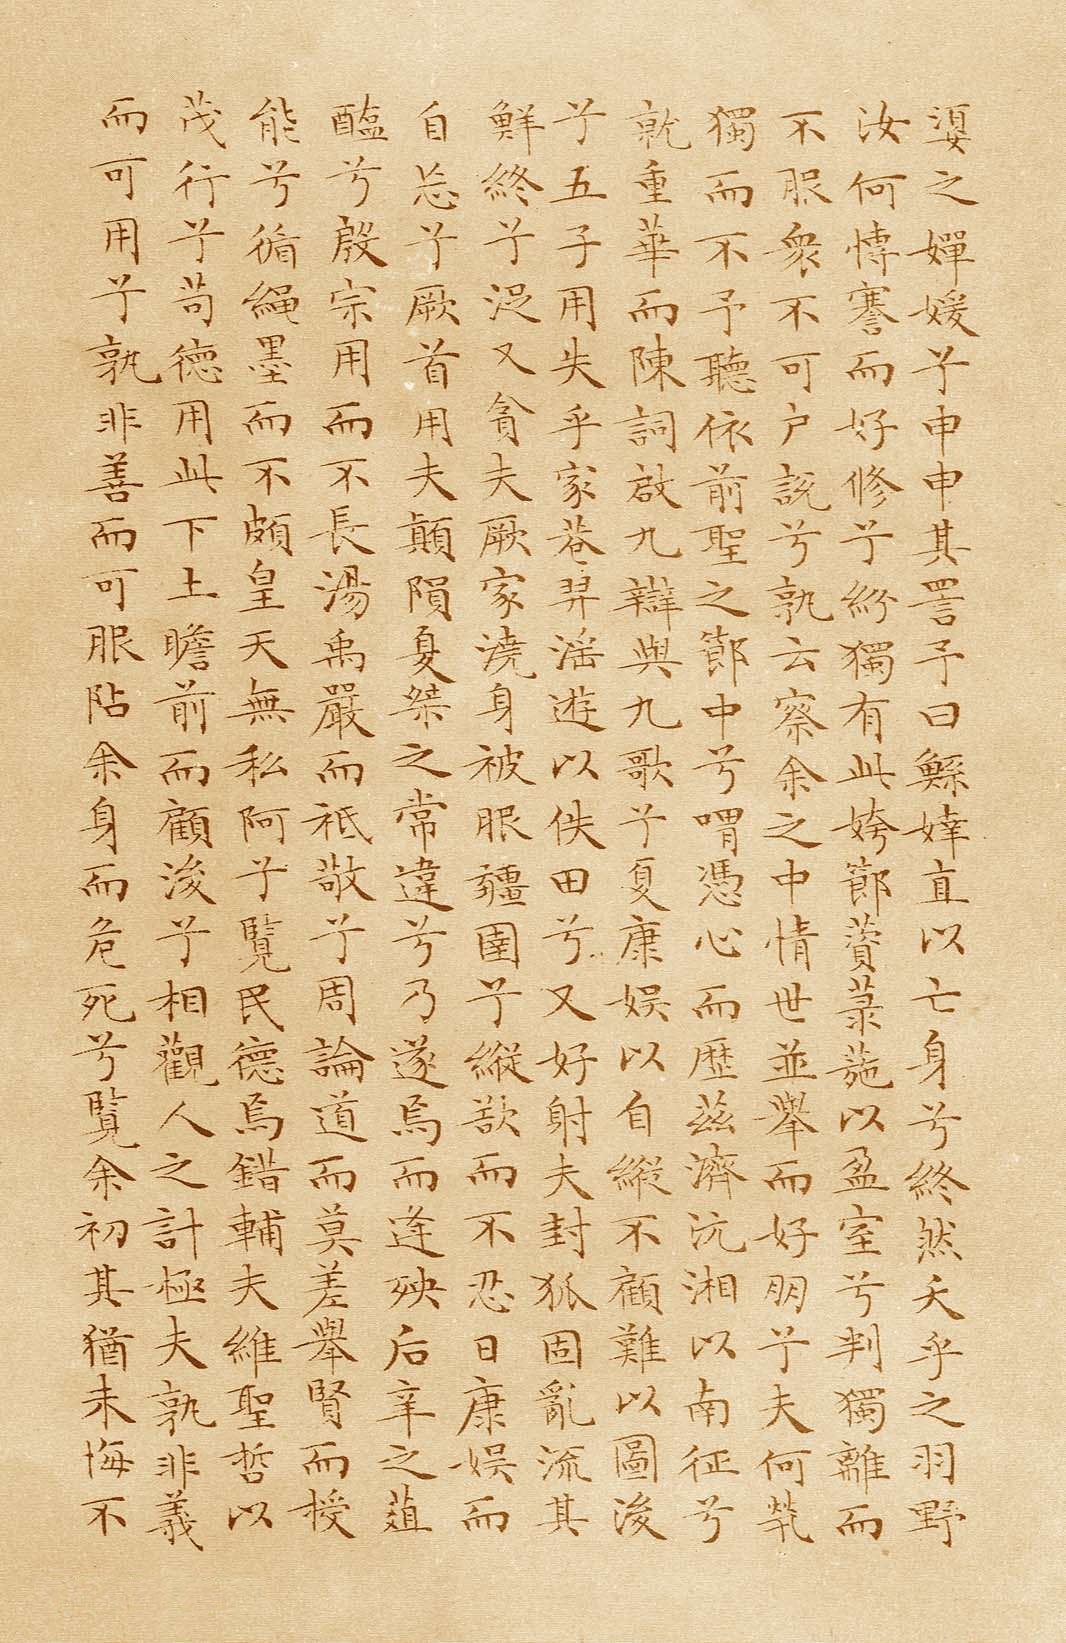 嬃之嬋媛兮申申其詈予曰鯀婞直以亡身兮終然夭乎之羽野
汝何博謇而好修兮紛獨有此姱節薋菉葹以盈室兮判獨離而
不服衆不可户說兮孰云察余之中情世並舉而好朋兮夫何煢
獨而不予聽依前聖之節中兮喟憑心而歷茲濟沅湘以南征兮
就重華而陳詞啟九辯與九歌兮夏康娱以自縱不顧難以圖後
兮五子用失乎家巷羿淫遊以佚田兮又好射夫封狐固亂流其
鮮終兮浞又貪夫厥家澆身被服疆圉兮縱欲而不忍日康娱而
自忘兮厥首用夫顛隕夏桀之常違兮乃遂焉而逢殃后辛之菹
醢兮殷宗用而不長湯禹嚴而祗敬兮周論道而莫差舉賢而授
能兮循繩墨而不頗皇天無私阿兮覽民德焉錯輔夫維聖哲以
茂行兮苟德用此下土瞻前而顧後兮相觀人之計極夫孰非義
而可用兮孰非善而可服阽余身而危死兮覽余初其猶未悔不